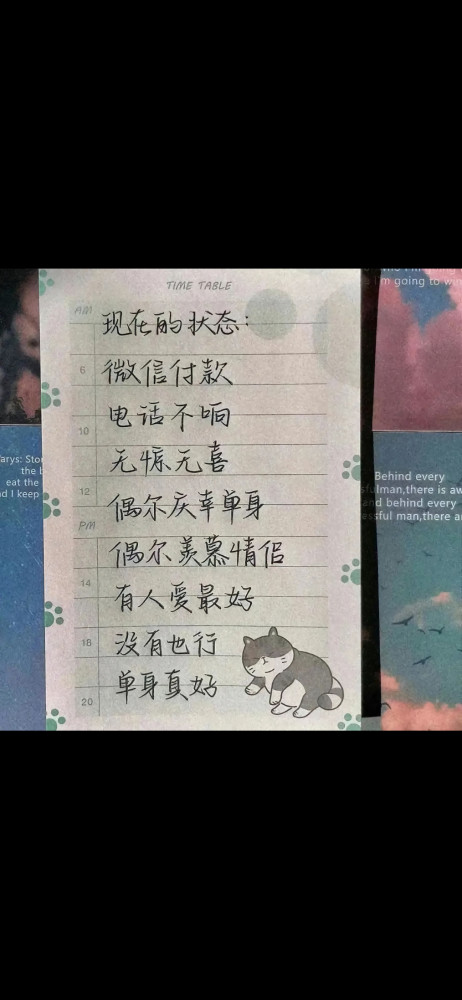 TIME TABLE
AM
现在的状态:
6
微信付款
电话不响
10
无惊无喜
12
偶尔庆幸单身
PM
偶尔羡慕情侣
14
有人爱最好
没有也行
18
单身真好
20
I'm going to win
Behind every
man,there is
and behind every
man,there
eat the
and I keep